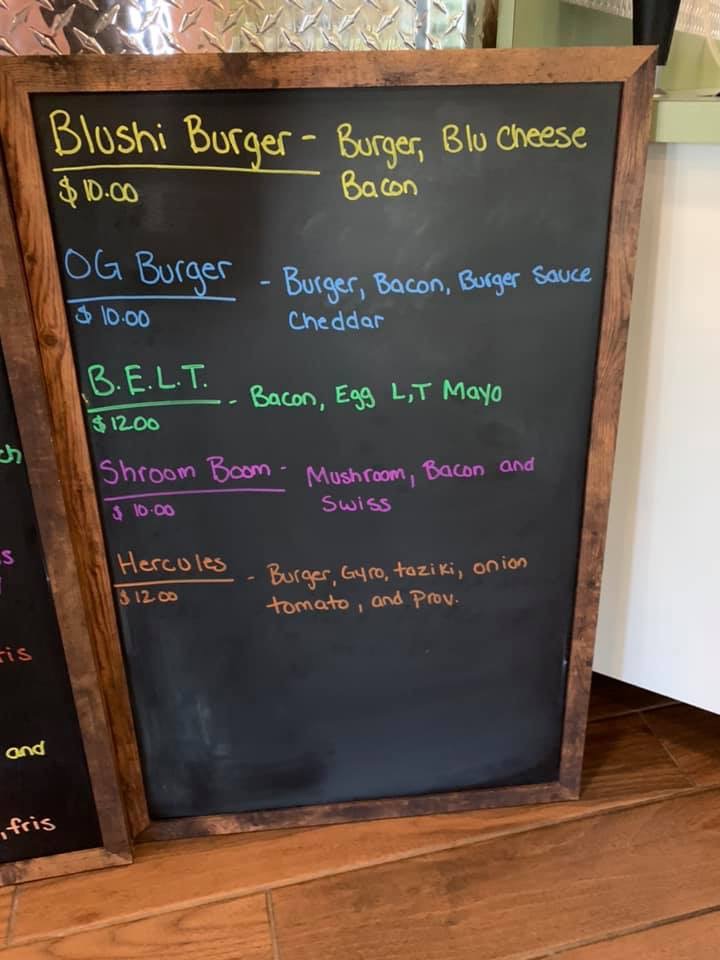 Blushi Burger - Burger, Blu Cheese
$10.00 Bacon
OG Burger - Burger, Bacon, Burger Sauce
$10.00 Cheddar
B.E.L.T. - Bacon, Egg L,T Mayo
$12.00
Shroom Boom - Mushroom, Bacon and
$10.00 Swiss
Hercules - Burger, Gyro, taziki, onion
$12.00 tomato, and Prov.
and